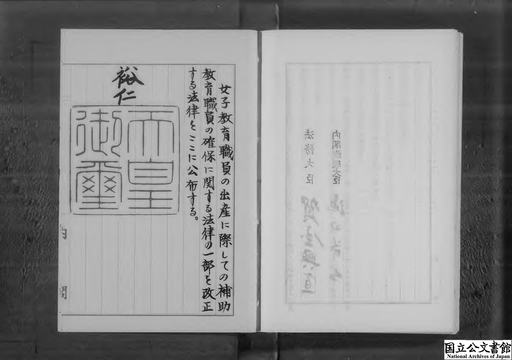 女子教育職員の出産に際しての補助
教育職員の確保に関する法律の一部を改正
する法律をここに公布する。
裕仁
天皇
御璽
内閣
法務大臣
国立公文書館
National Archives of Japan